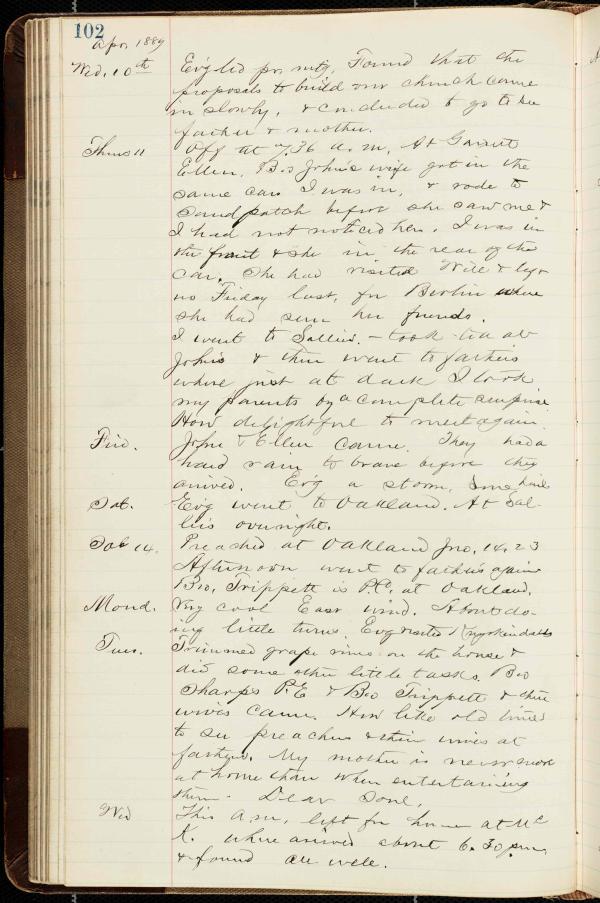 102
Apr. 1889
Wed. 10th Ev'g led pr. mtg. Found that the
proposals to build our church come
in slowly, & concluded to go to see
father & mother.
Thurs 11 Off at 7.36 a.m. At Garrett
Ellen, Bro John's wife got in the
same car I was in, & rode to
Sandpatch before she saw me &
I had not noticed her. I was in
the front & she in the rear of the
car. She had visited Will & left
us Friday last, for Berlin where
she had seen her friends.
I went to Sallie's. - took tea at
John's & then went to father's
where just at dark I took
my parents by a complete surprise
How delightful to meet again.
Frid. John & Ellen came. They had a
hard rain to brave before they
arived. Ev'g a storm, some hail
Sat. Ev'g went to Oakland. At Sal-
lies overnight.
Sab 14. Preached at Oakland Jno. 14.23
Afternoon went to father's again
Bro. Trippett is P.C. at Oakland.
Mond. Very cool East wind. About do-
ing little turns. Evg visited Kuykendalls
Tues. Trimmed grape vines on the house &
did some other little tasks. Bro
Sharpes P.E & Bro Trippett & their
wives came. How like old times
to see preachers & their wives at
fathers. My mother is never more
at home than when entertaining
them. Dear Soul,
Wed This a.m. left for home at Mc
K. where arrived about 6.30 p.m.
& found all well.